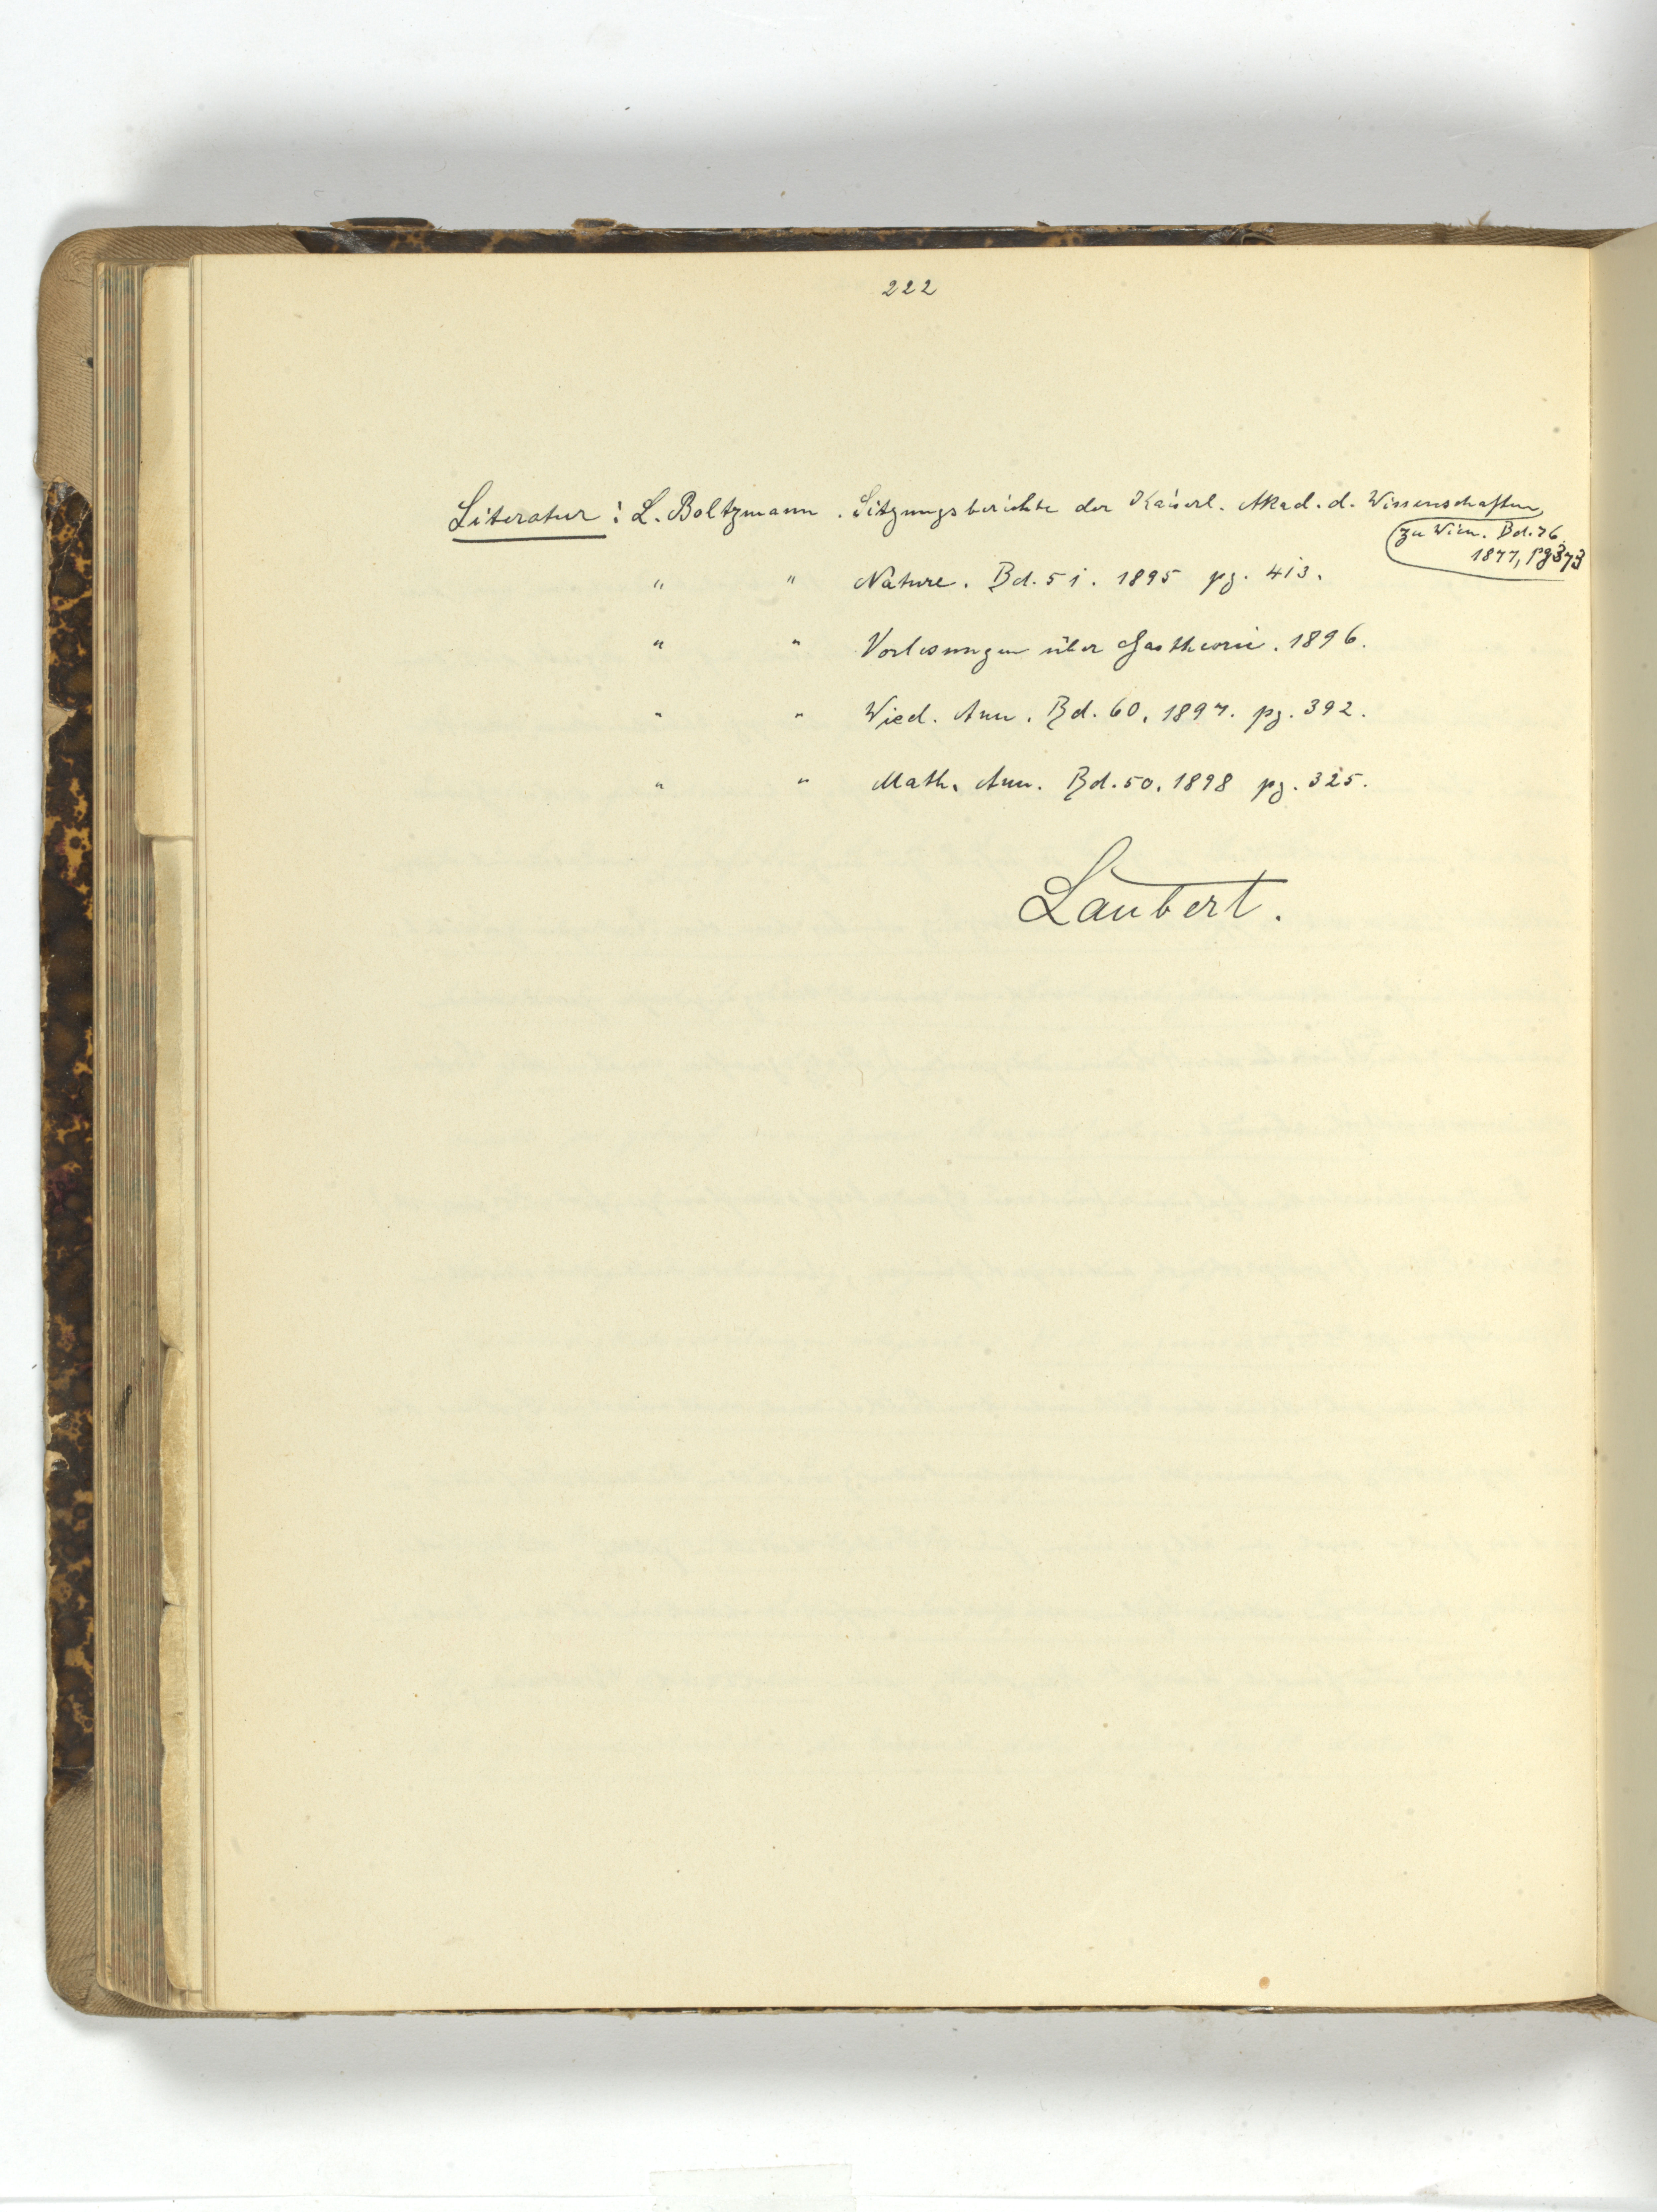 222
Literatur : L. Boltzmann. Sitzungsberichte der Kaiserl. Akad. d. Wissenschaften,
zu Wien. Bd. 76
1877, pg 373
" " Nature. Bd. 51. 1895 pg. 413.
" " Vorlesungen über Gastheorie. 1896.
" " Wied. Ann. Bd. 60, 1897. pg. 392.
" " Math. Ann. Bd. 50, 1898 pg. 325.
Laubert.